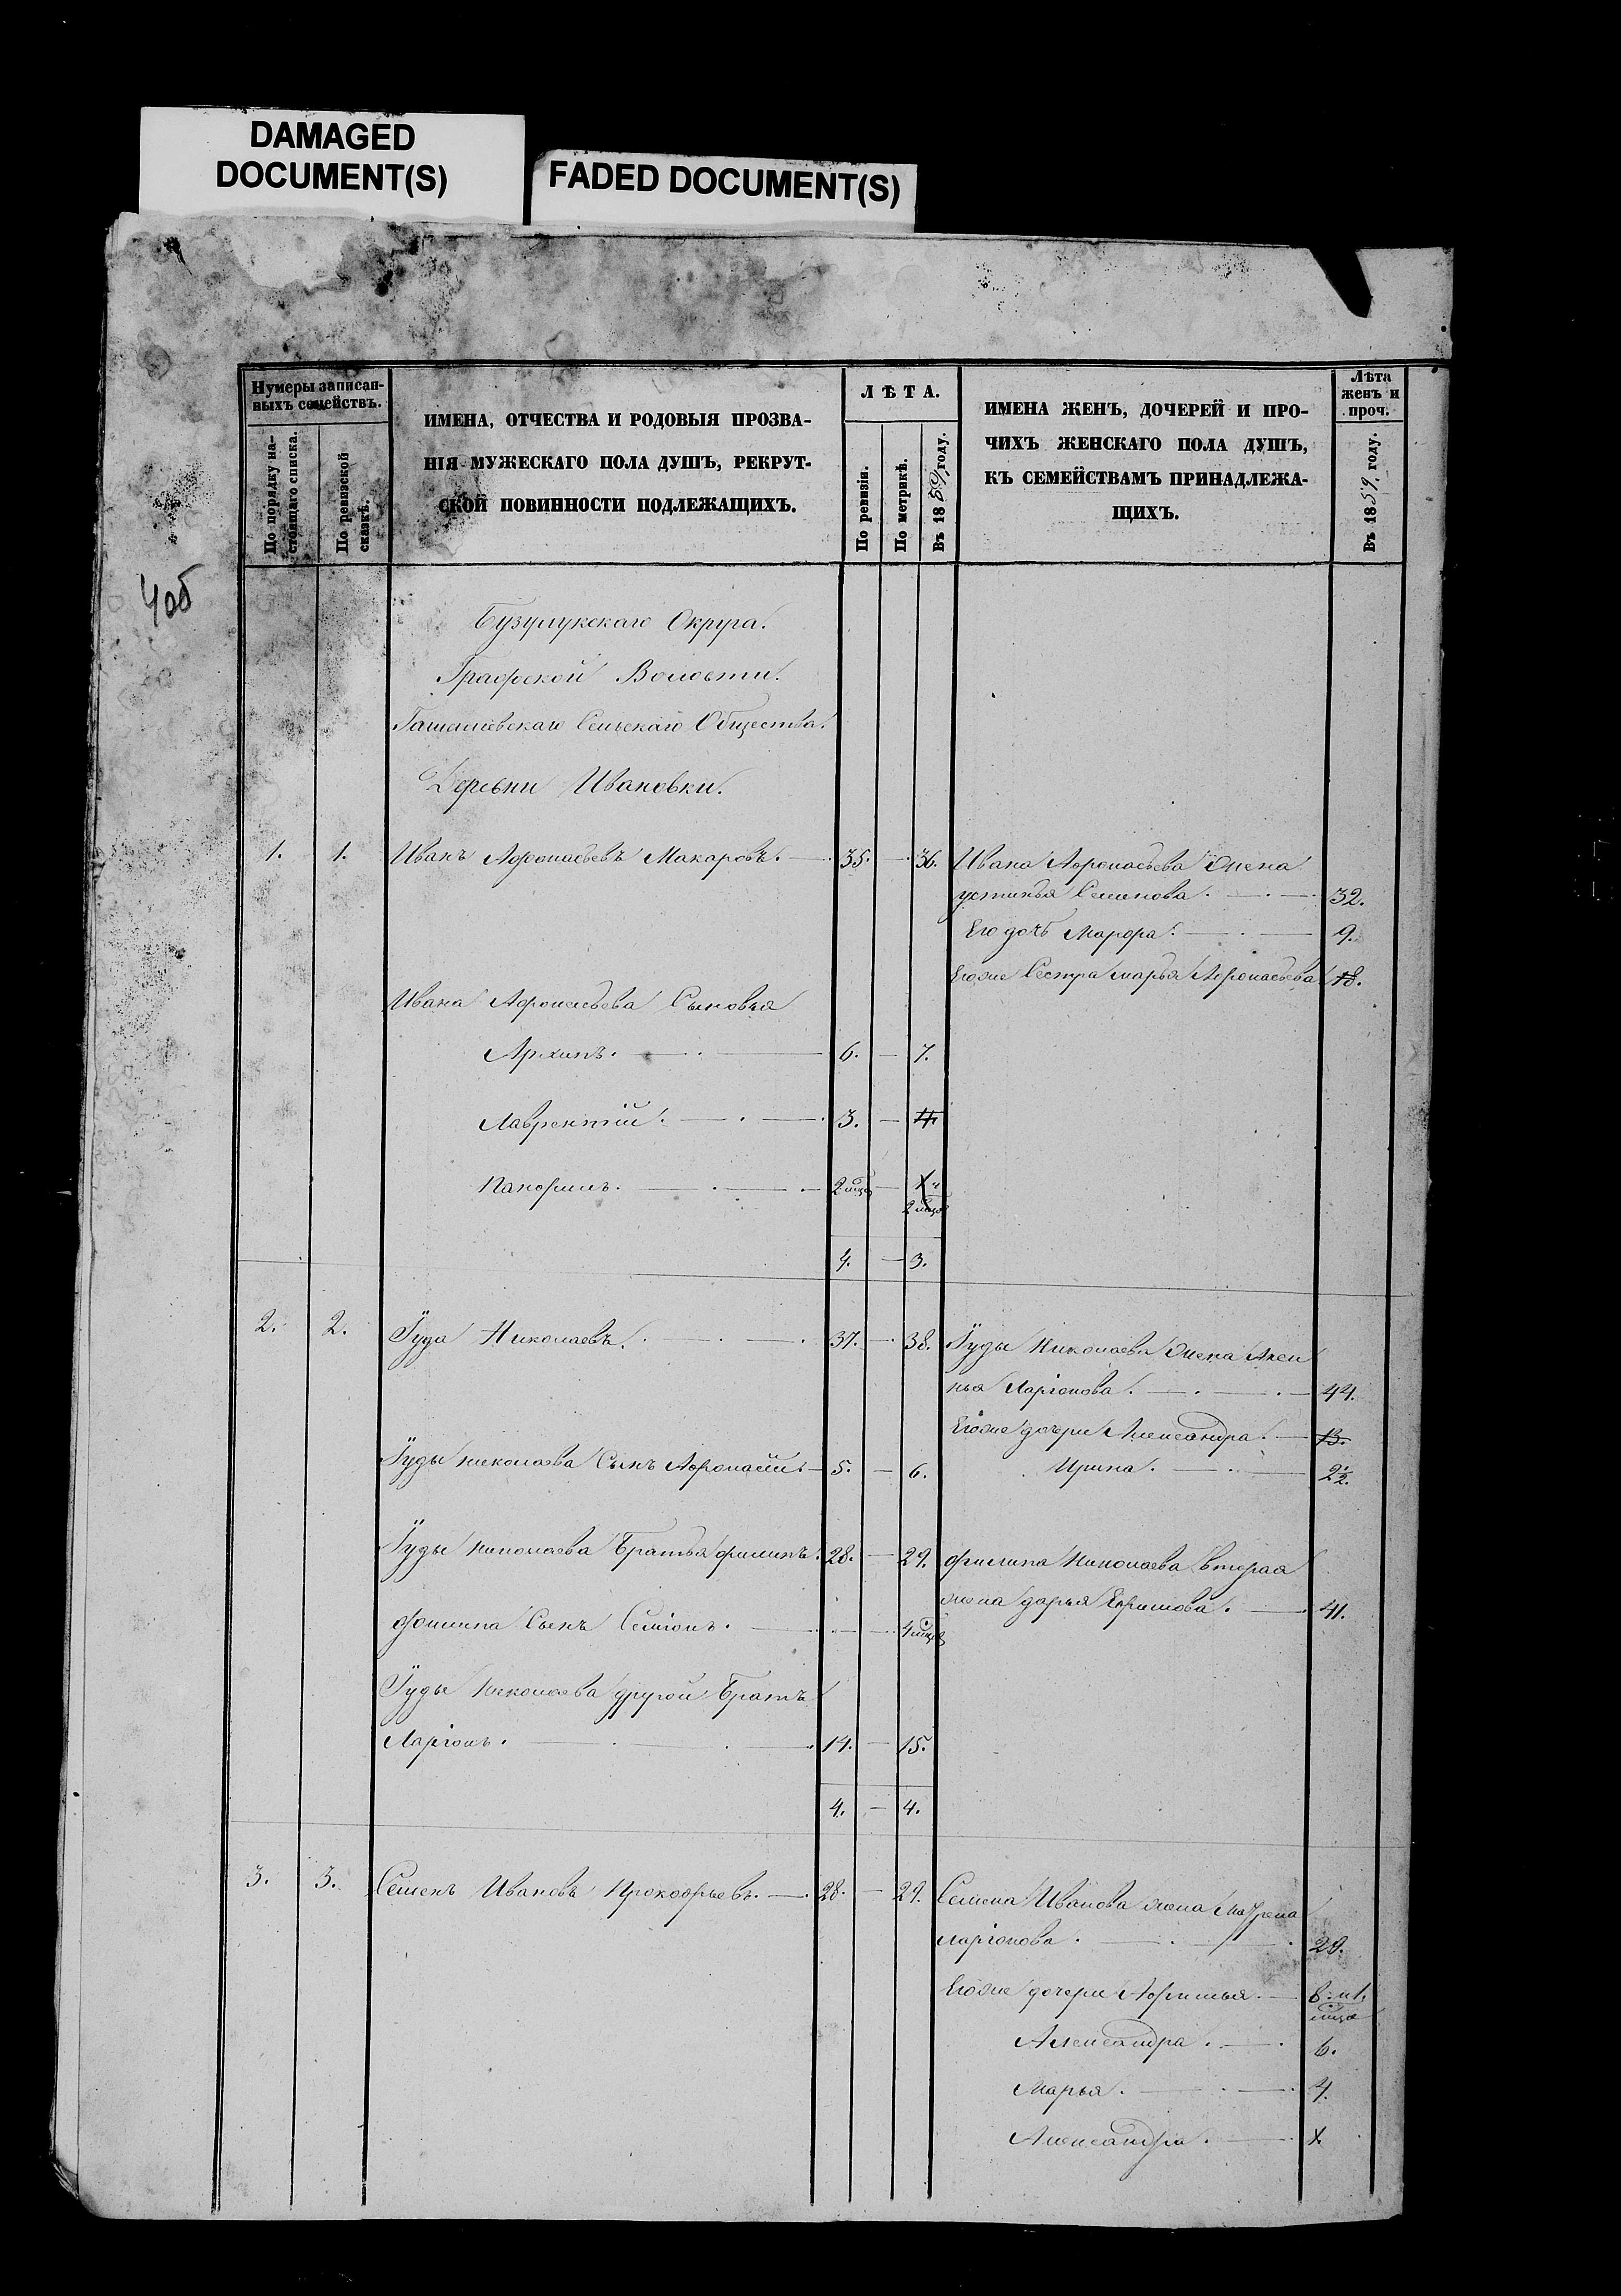 DAMAGED
DOCUMENT(S)
FADED DOCUMENT(S)
Нумеры записан-
ныхъ семействъ.
По порядку на-
стоящаго списка.
По ревизской
сказкѣ.
ИМЕНА, ОТЧЕСТВА И РОДОВЫЯ ПРОЗВА-
НІЯ МУЖЕСКАГО ПОЛА ДУШЪ, РЕКРУТ-
СКОЙ ПОВИННОСТИ ПОДЛЕЖАЩИХЪ.
ЛѢТА.
По ревизіи.
По метрикѣ.
Въ 1859 году.
ИМЕНА ЖЕНЪ, ДОЧЕРЕЙ И ПРО-
ЧИХЪ ЖЕНСКАГО ПОЛА ДУШЪ,
КЪ СЕМЕЙСТВАМЪ ПРИНАДЛЕЖА-
ЩИХЪ.
Лѣта
женъ и
проч.
Въ 1859 году.
4об
Бузулукскаго Округа.
Графской Волости.
Сельскаго Общества.
Деревни Ивановки.
1. 1. Иванъ Афонасьевъ Макаровъ. 35. 36. Ивана Афонасьева жена
устинья Семенова. 32.
Его дочь Марфа. 9.
Егоже Сестра марья Афонасьева 18.
Ивана Афонасьева Сыновья
Архипъ. 6. 7.
Лаврентій. 3. 4.
2 мца
2 мца
4. 3.
2. 2. Іуда Николаевъ. 37. 38. Іуды Николаева жена Акси
нья Ларіонова. 44.
Егоже дочери Александра. 13.
Іуды николаева Сынъ Афонасій 5. 6. Ирина. 2½.
Іуды николаева Братья филипъ. 28. 29. филипа Николаева вторая
жена дарья Ефимова. 41.
филипа Сынъ Семіонъ.
Іуды Николаева другой Братъ
Ларіонъ. 14. 15.
4. 4.
3. 3. Семенъ Ивановъ Прокофьевъ. 28. 29. Семена Иванова жена Матрена
ларіонова. 29.
Егоже дочери
мца
Александра. 6.
Марья. 4.
Александра.